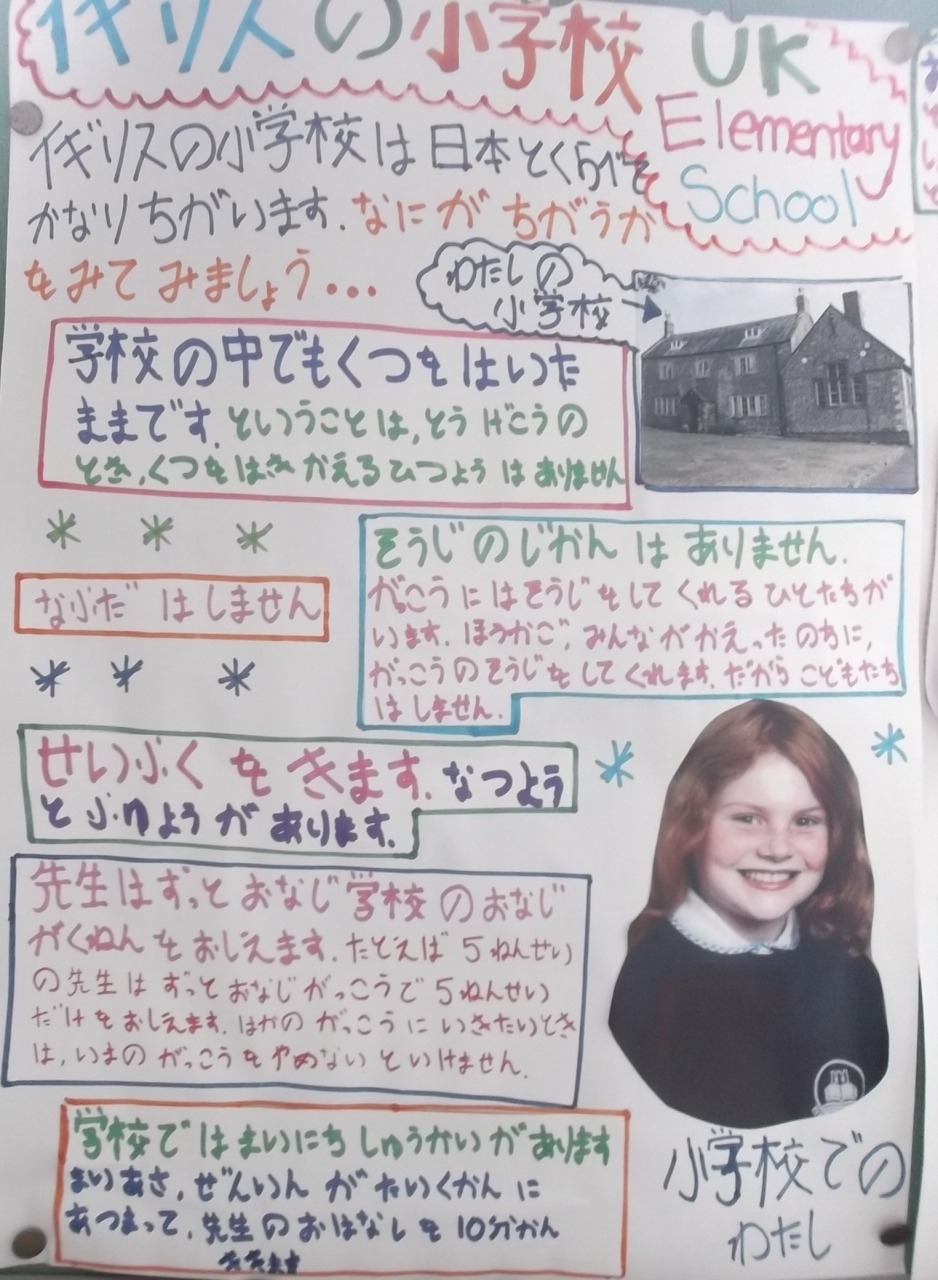 イギリスの小学校 UK
Elementary
School
イギリスの小学校は日本とくらべて
かなりちがいます. なにが ちがうか
をみて みましょう...
わたしの
小学校
学校の中でもくつをはいた
ままです. ということは, とうげこうの
とき, くつをはきかえるひつようはありません
そうじのじかんはありません.
がっこうにはそうじをしてくれるひとたちが
います. ほうかご, みんながかえったのちに,
がっこうのそうじをしてくれます. だからこどもたち
はしません.
なふだはしません
せいふくをきます. なつよう
とふゆようがあります.
先生はずっとおなじ学校のおなじ
がくねんをおしえます. たとえば5ねんせい
の先生はずっとおなじがっこうで5ねんせい
だけをおしえます. ほかのがっこうにいきたいとき
は, いまのがっこうをやめないといけません.
学校ではまいにちしゅうかいがあります
まいあさ, ぜんいんがたいくかんに
あつまって, 先生のおはなしを10分かん
ききます
小学校での
わたし